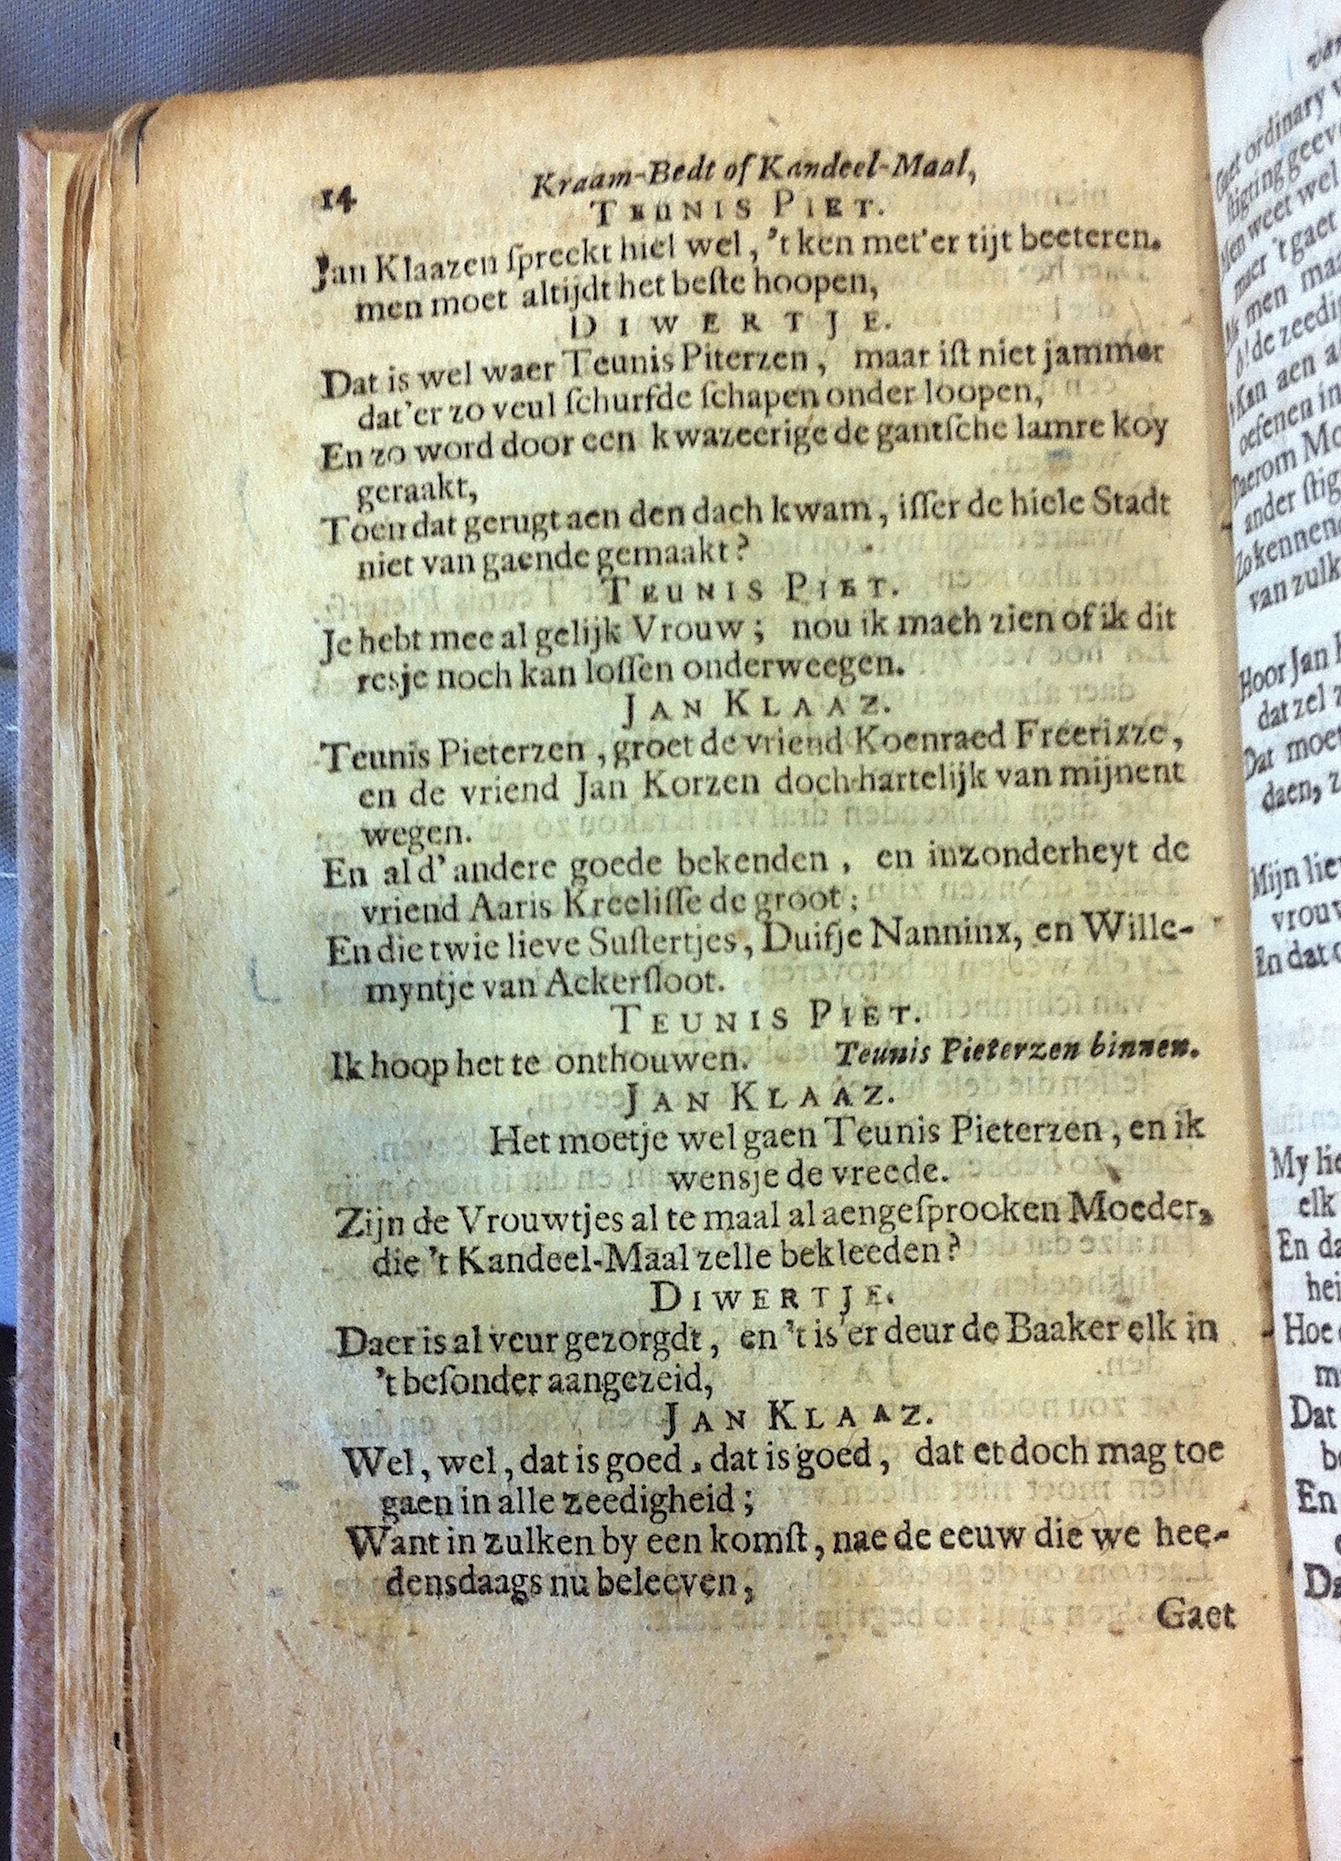 14 Kraam-Bedt of Kandeel-Maal,
TEUNIS PIET.
Jan Klaazen ſpreekt hiel wel, 't ken met'er tijt beeteren.
men moet altijdt het beſte hoopen,
DIWERTJE.
Dat is wel waer Teunis Piterzen, maar iſt niet jammer
dat'er zo veul ſchurfde ſchapen onder loopen,
En zo word door een kwazeerige de gantſche lamre koy
geraakt,
Toen dat gerugt aen den dach kwam, iſſer de hiele Stadt
niet van gaende gemaakt?
TEUNIS PIET.
Je hebt mee al gelijk Vrouw; nou ik mach zien of ik dit
resje noch kan loſſen onderweegen.
JAN KLAAZ.
Teunis Pieterzen, groet de vriend Koenraed Freerixze,
en de vriend Jan Korzen doch hartelijk van mijnent
wegen.
En al d'andere goede bekenden, en inzonderheyt de
vriend Aaris Kreeliſſe de groot;
En die twie lieve Suſtertjes, Duifje Nanninx, en Wille-
myntje van Ackerſloot.
TEUNIS PIET.
Ik hoop het te onthouwen. Teunis Pieterzen binnen.
JAN KLAAZ.
Het moetje wel gaen Teunis Pieterzen, en ik
wensje de vreede.
Zijn de Vrouwtjes al te maal al aengeſprooken Moeder,
die 't Kandeel-Maal zelle bekleeden?
DIWERTJE.
Daer is al veur gezorgdt, en 't is'er deur de Baaker elk in
't beſonder aangezeid,
JAN KLAAZ.
Wel, wel, dat is goed, dat is goed, dat et doch mag toe
gaen in alle zeedigheid;
Want in zulken by een komſt, nae de eeuw die we hee-
densdaags nu beleeven,
Gaet